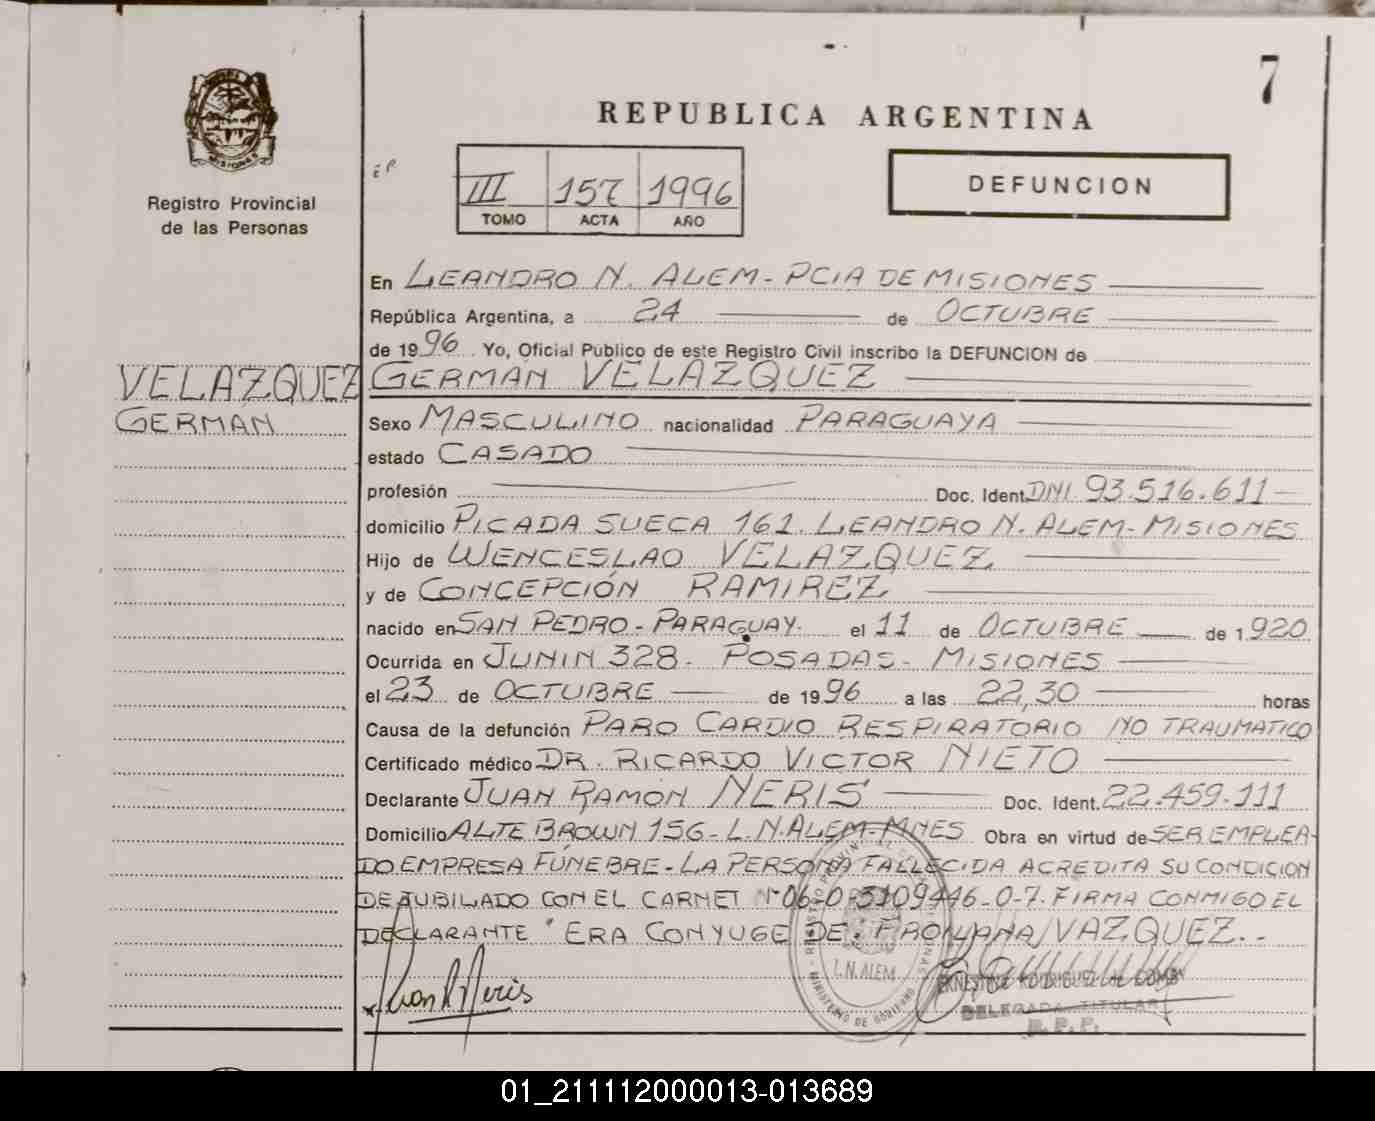 7
REPUBLICA ARGENTINA
MISIONES
Registro Provincial
de las Personas
III 157 1996
TOMO ACTA AÑO
DEFUNCION
En LEANDRO N. ALEM - PCIA DE MISIONES
República Argentina, a 24 de OCTUBRE
de 1996 Yo, Oficial Público de este Registro Civil inscribo la DEFUNCION de
VELAZQUEZ
GERMAN
GERMAN VELAZQUEZ
Sexo MASCULINO nacionalidad PARAGUAYA
estado CASADO
profesión Doc. Ident. DNI 93.516.611
domicilio PICADA SUECA 161. LEANDRO N. ALEM - MISIONES
Hijo de WENCESLAO VELAZQUEZ
y de CONCEPCIÓN RAMIREZ
nacido en SAN PEDRO - PARAGUAY. el 11 de OCTUBRE de 1920
Ocurrida en JUNIN 328 - POSADAS - MISIONES
el 23 de OCTUBRE de 1996 a las 22,30 horas
Causa de la defunción PARO CARDIO RESPIRATORIO NO TRAUMATICO
Certificado médico DR. RICARDO VICTOR NIETO
Declarante JUAN RAMON NERIS Doc. Ident. 22.459.111
Domicilio ALTE BROWN 156 - L.N.ALEM - MNES Obra en virtud de SER EMPLEA-
DO EMPRESA FÚNEBRE - LA PERSONA FALLECIDA ACREDITA SU CONDICION
DE JUBILADO CON EL CARNET Nº 06-0-3109446-0-7. FIRMA CONMIGO EL
DECLARANTE ERA CONYUGE DE FROILANA VAZQUEZ. -
L.N. ALEM
MINISTERIO DE GOBIERNO
Juan R Neris
DELEGADA TITULAR
R. P. P.
01_211112000013-013689